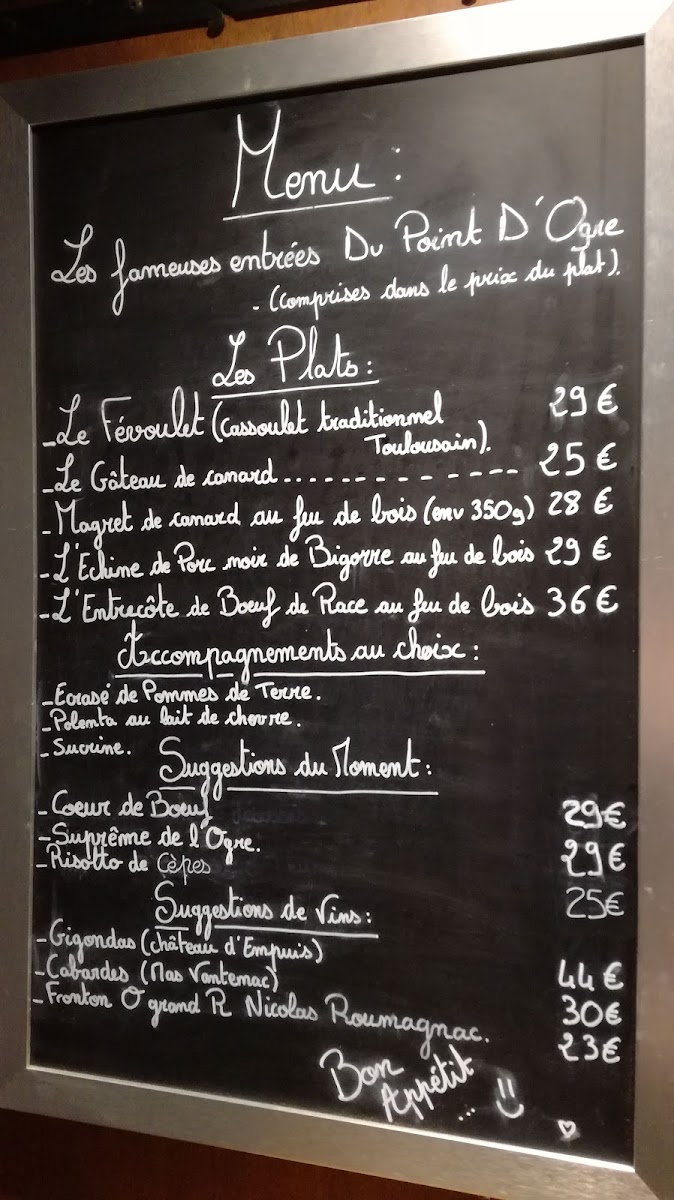 Menu :
Les fameuses entrées Du Point D'Ogre
- (comprises dans le prix du plat).
Les Plats :
- Le Févoulet (Cassoulet traditionnel 29 €
Toulousain).
- Le Gâteau de canard .... - - - - 25 €
- Magret de canard au feu de bois (env 350g) 28 €
- L'Echine de Porc noir de Bigorre au feu de bois 29 €
- L'Entrecôte de Boeuf de Race au feu de bois 36 €
Accompagnements au choix :
- Ecrasé de Pommes de Terre.
- Polenta au lait de chèvre.
- Sucrine.
Suggestions du Moment :
- Coeur de Boeuf 29€
- Suprême de l'Ogre. 29€
- Risotto de Cèpes 25€
Suggestions de Vins :
- Gigondas (château d'Empuis) 44€
- Cabardes (Mas Vantenac) 30€
- Fronton Ô grand R Nicolas Roumagnac. 23€
Bon
Appétit
...